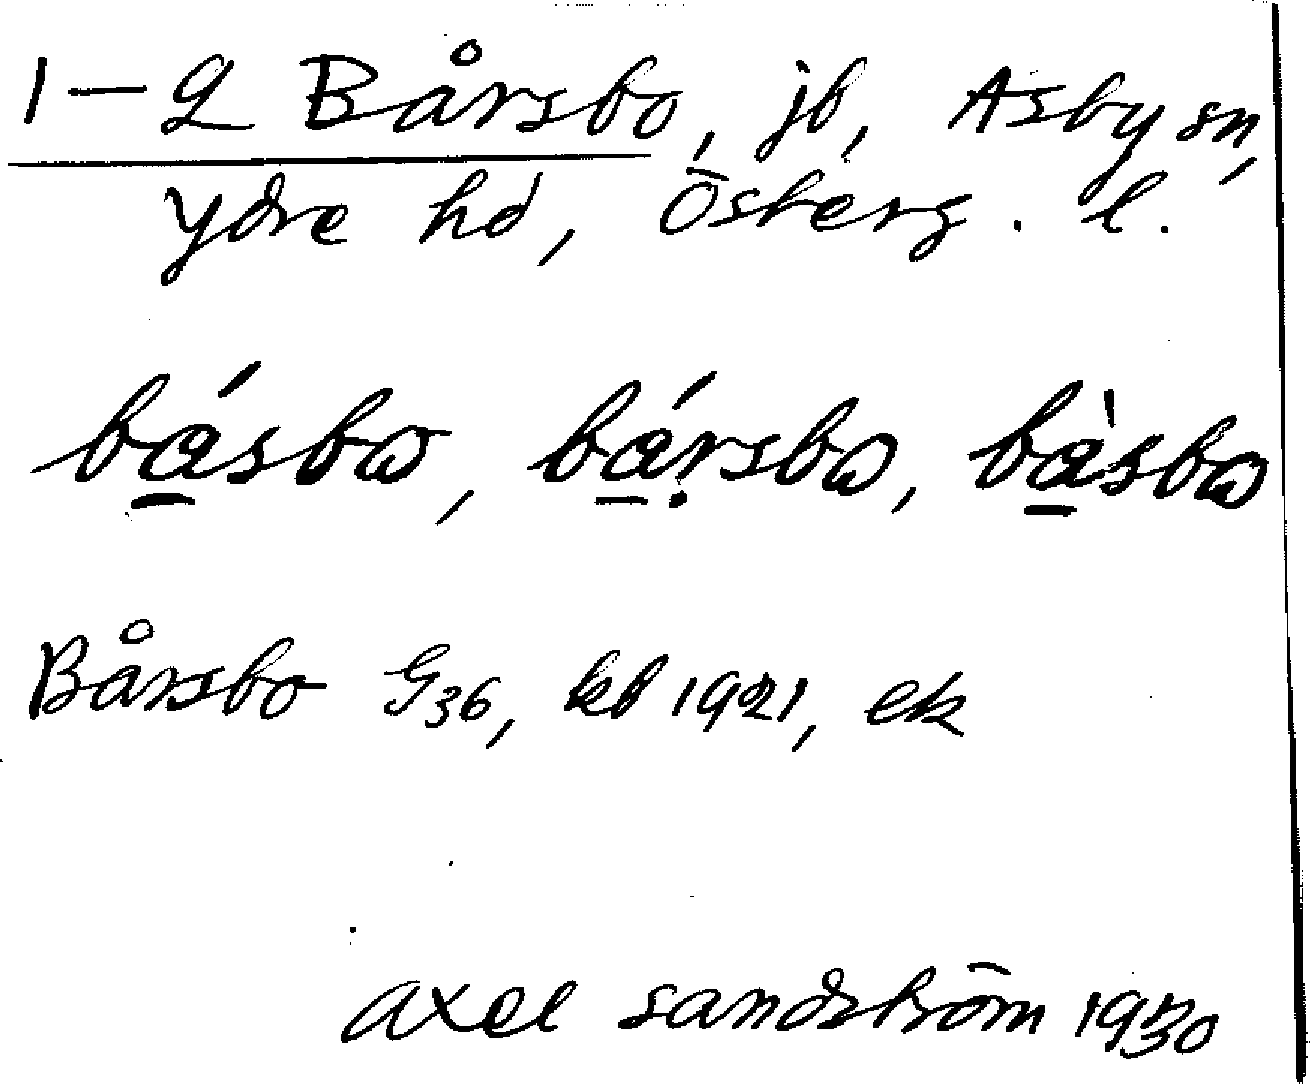 1–2 Bårsbo, jb, Asby sn,
Ydre hd, Österg. l.
básbω, bárṣbω, bàsbω
Bårsbo G36, kb 1921, ek
Axel Sandström 1930